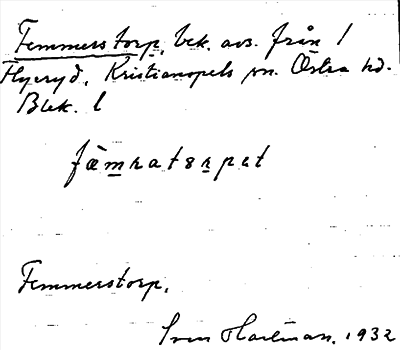 Femmerstorp, bek. avs. från 1
Flyeryd, Kristianopels sn. Östra hd.
Blek. l
fæmratorpet
Femmerstorp.
Sven Hartman. 1932